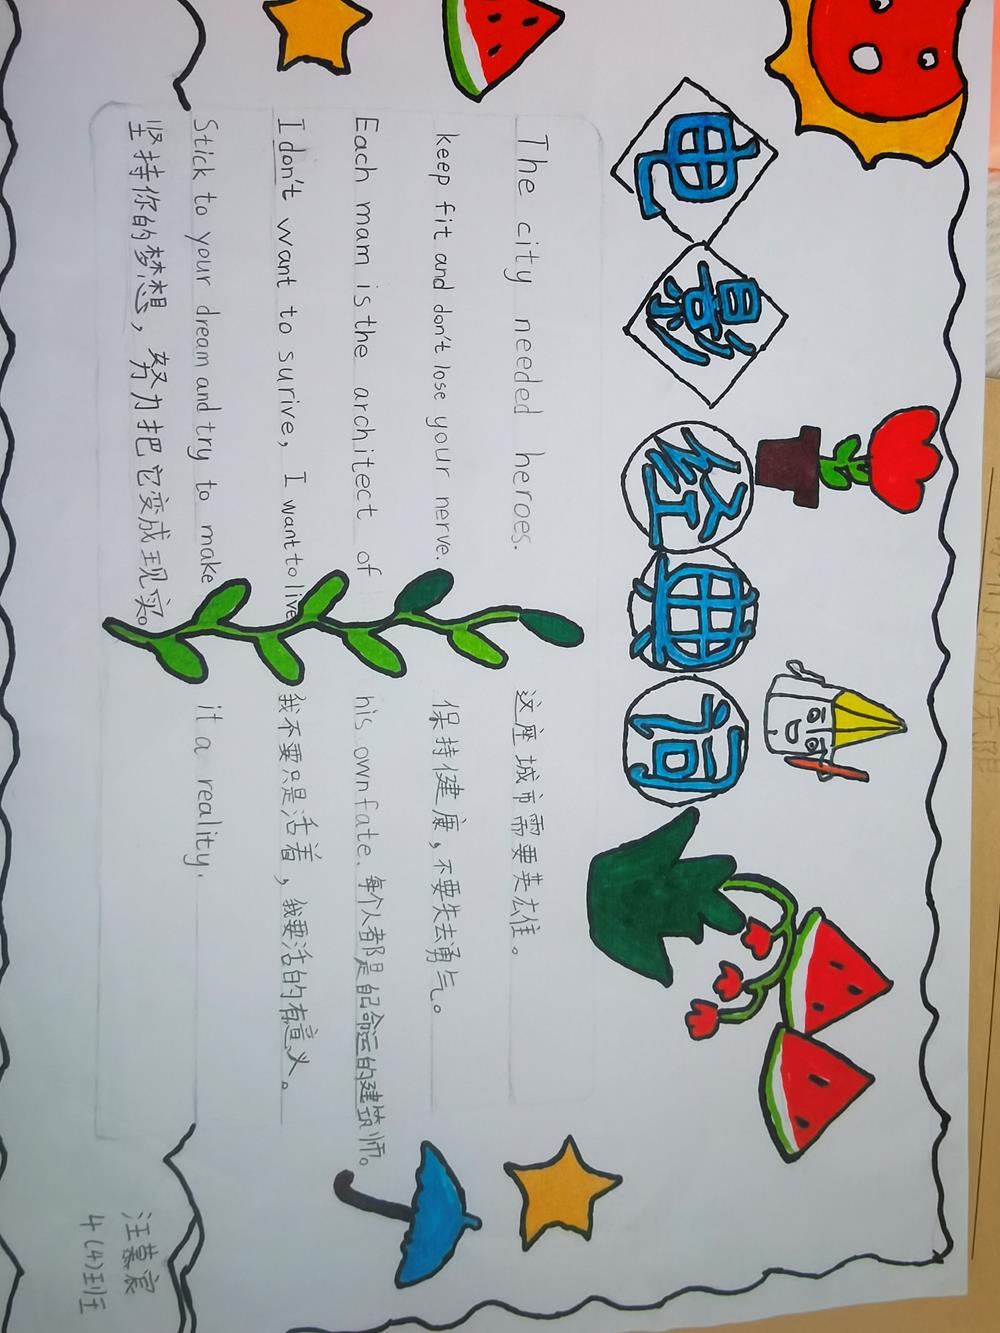 电影经典词
The city needed heroes. 这座城市需要英雄。
keep fit and don't lose your nerve. 保持健康，不要失去勇气。
Each mam is the architect of his own fate. 每个人都是自己命运的建筑师。
I don't want to surive, I want to live 我不要只是活着，我要活的有意义。
Stick to your dream and try to make it a reality.
坚持你的梦想，努力把它变成现实。
汪慕宸
4(4)班